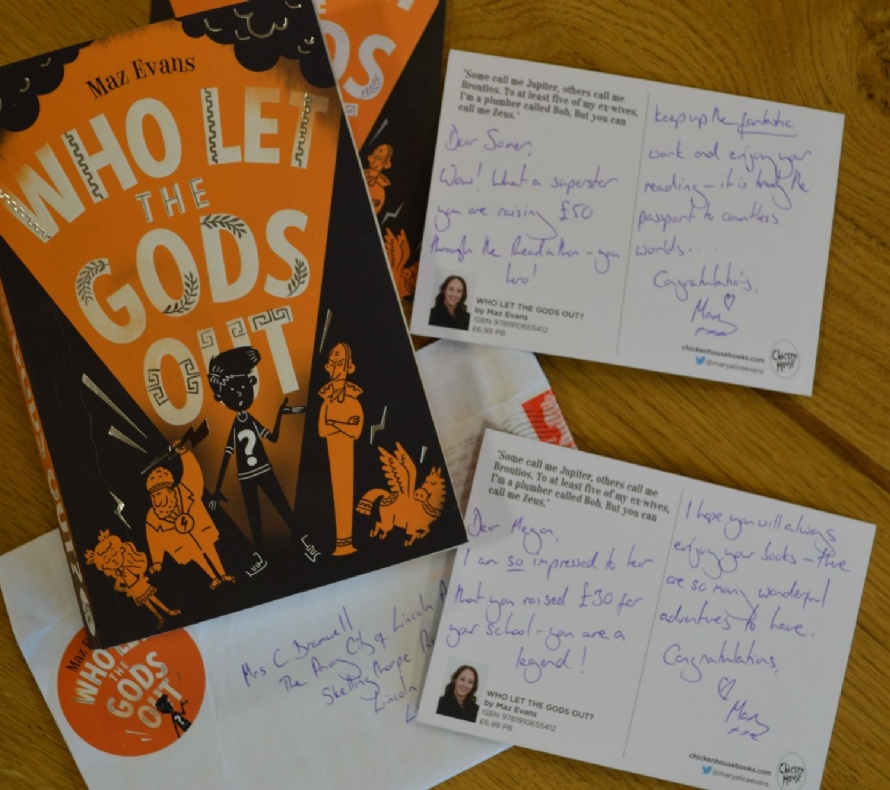 Maz Evans
WHO LET
THE
GODS
OUT
GODS
'Some call me Jupiter, others call me
Brontios. To at least five of my ex-wives,
I'm a plumber called Bob. But you can
call me Zeus.'
Dear Somer,
Wow! What a superstar
you are raising £50
through the Readathon - you
hero!
WHO LET THE GODS OUT?
by Maz Evans
ISBN 9781910655412
£6.99 PB
keep up the fantastic
work and enjoy your
reading - it is truly the
passport to countless
worlds...
Congratulations,
Mary
chickenhousebooks.com
@maryaliceevans
CHICKEN
HOUSE
'Some call me Jupiter, others call me
Brontios. To at least five of my ex-wives,
I'm a plumber called Bob. But you can
call me Zeus.'
Dear Megan,
I am so impressed to hear
that you raised £30 for
your school - you are a
legend!
WHO LET THE GODS OUT?
by Maz Evans
ISBN 9781910655412
£6.99 PB
I hope you will always
enjoy your books - there
are so many wonderful
adventures to have.
Congratulations,
Mary
chickenhousebooks.com
@maryaliceevans
CHICKEN
HOUSE
Mrs C Bramwell
The Priory City of Lincoln A
Skellingthorpe
Lincoln
L
Maz
WHO LET
THE
GODS
OUT